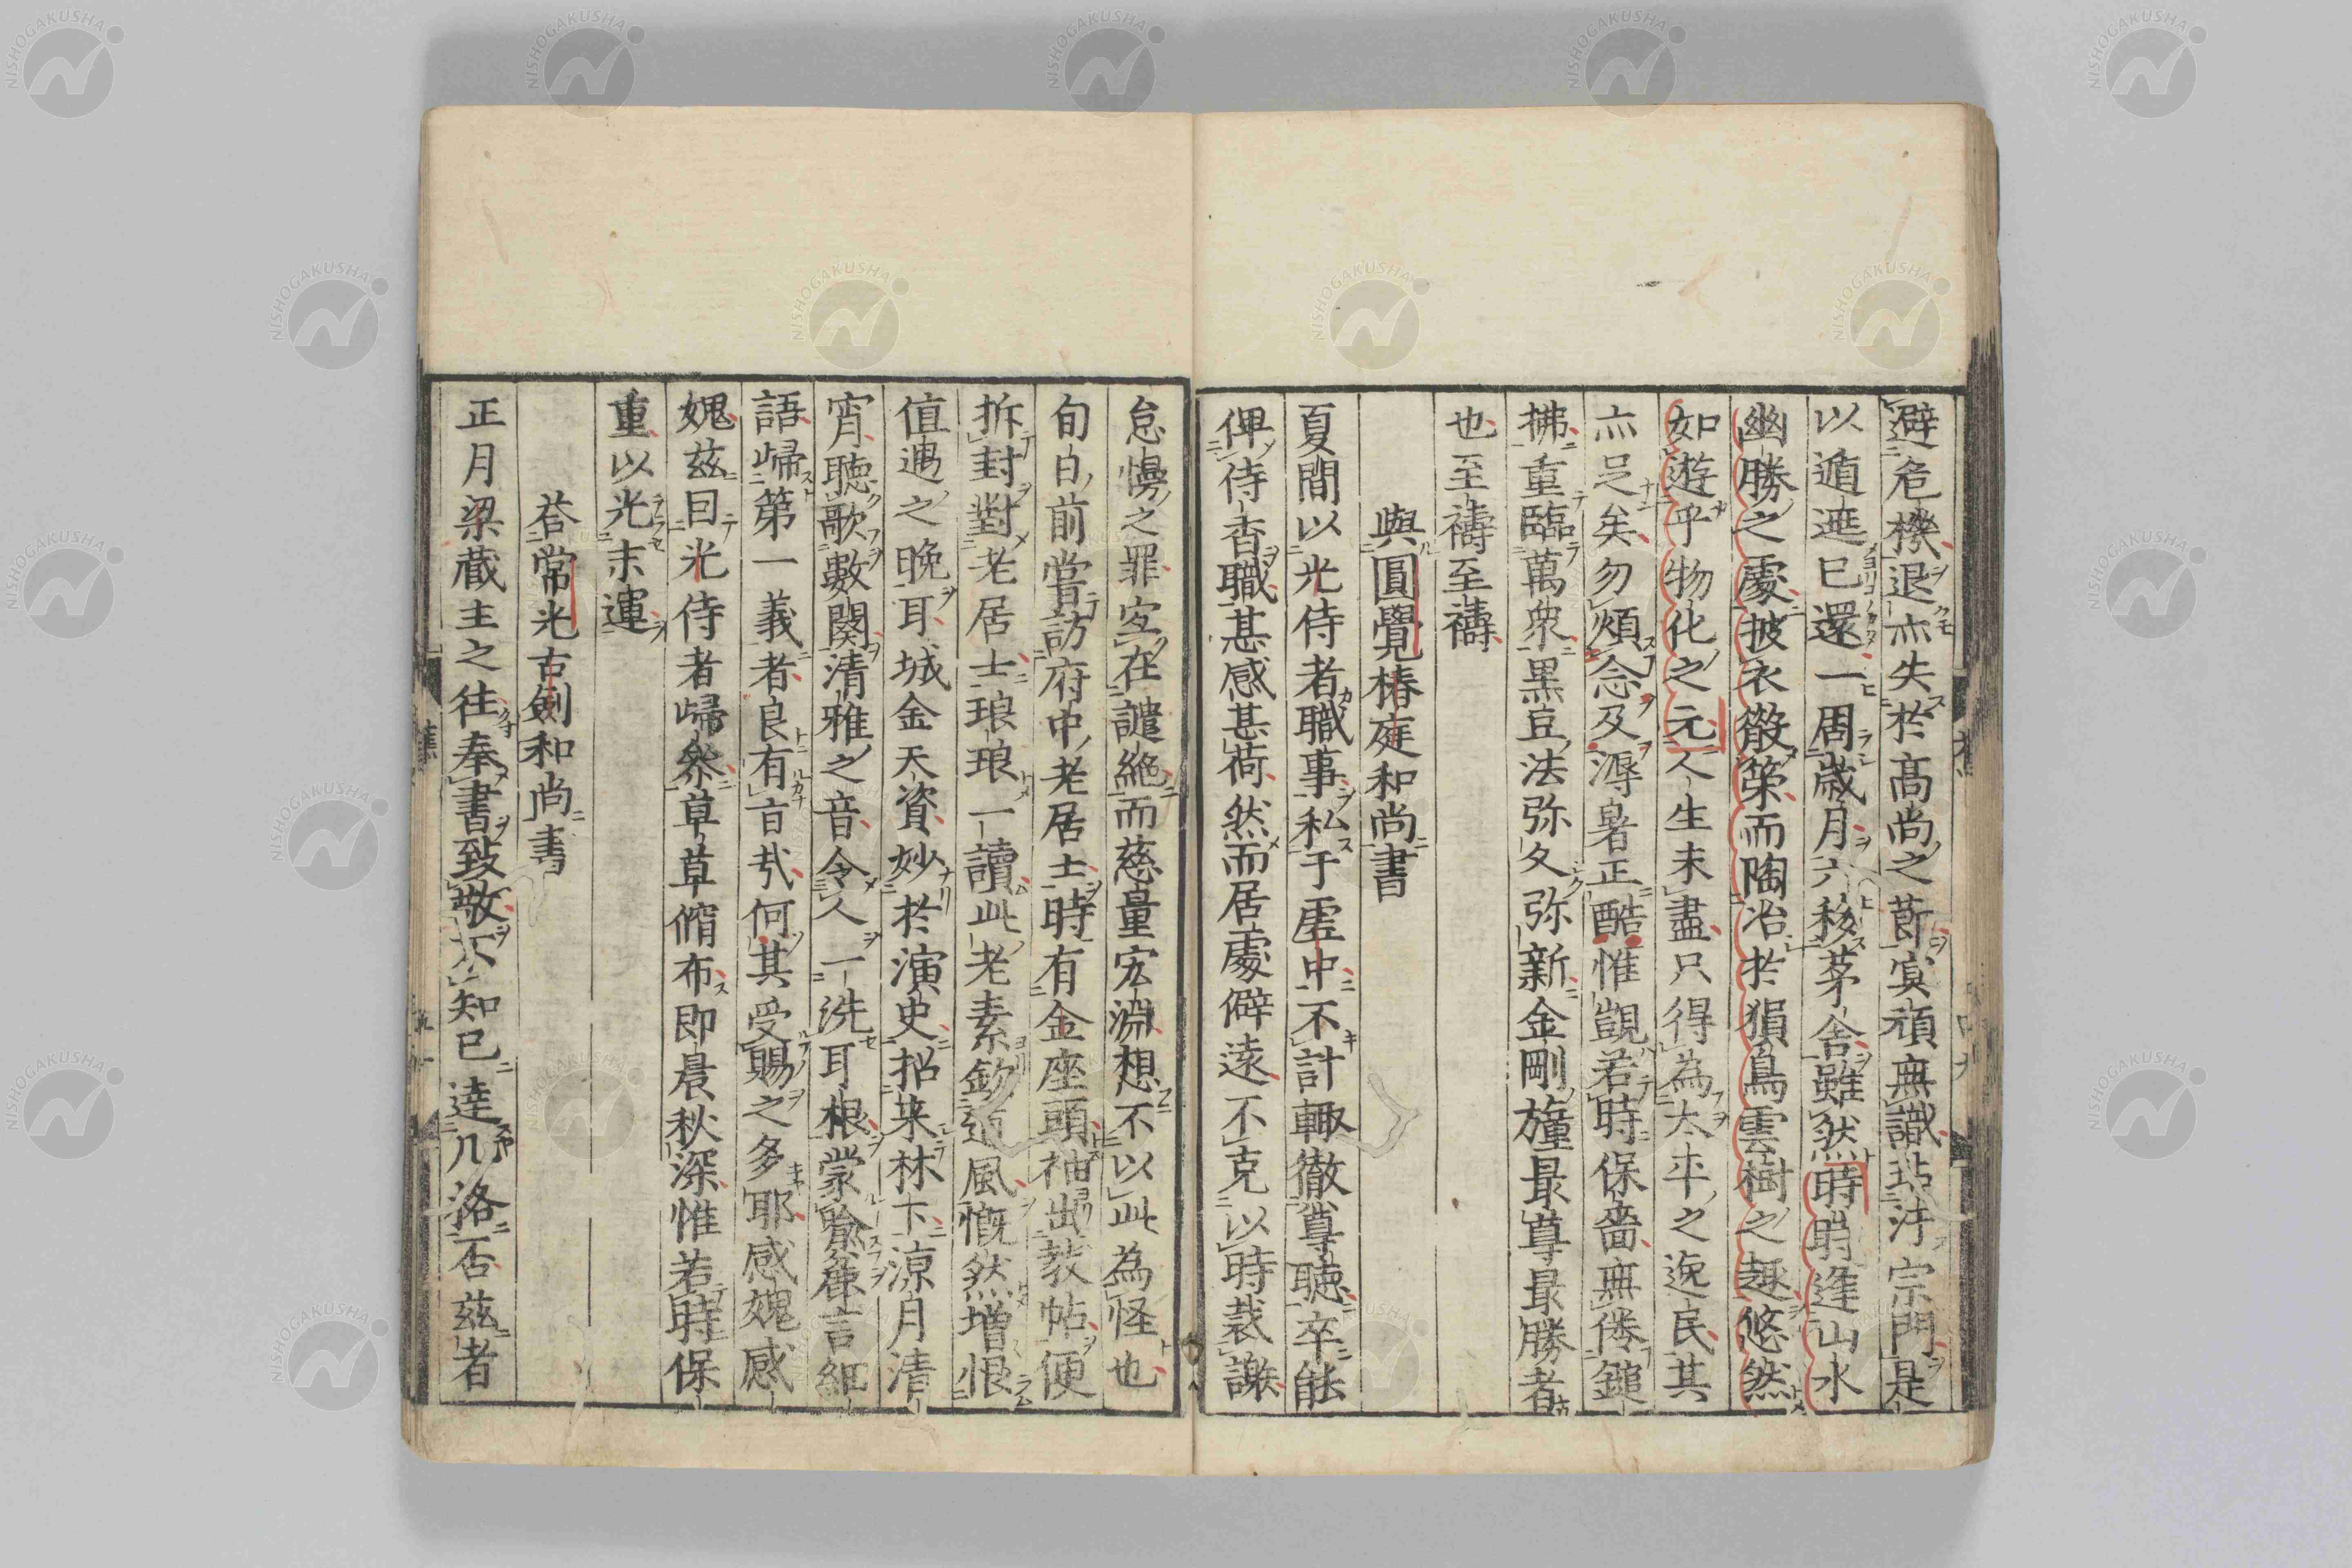 避危機退亦失於髙尚之莭寔頑無識玷汙宗門是
以遁遮巳還一周歳月六移茅舎雖然時時逢山水
幽勝之處披衣散策而陶冶於猨鳥雲樹之趣悠然
如遊乎物化之元人生未盡只得為太平之逸民其
亦足矣勿煩念及溽暑正酷惟覬若時保嗇無倦鎚
拂重臨萬衆黒豆法弥久弥新金剛幢最尊最勝者
也至禱至禱
與圓覺椿庭和尚書
夏間以光侍者職事私于虚中不計輙徹尊聴卒能
俾侍香職甚感甚荷然而居處僻遠不克以時裁謝
怠慢之罪宜在譴絶而慈量宏淵想不以此為怪也
旬白前嘗訪府中老居士時有金座頭袖出教帖便
拆封對老居士琅琅一讀此老素欽道風慨然増恨
値遇之晩耳城金天資妙於演史招来林下涼月清
宵聴歌數闋清雅之音令人一洗耳根蒙喩麁言細
語歸第一義者良有言㢤何其受賜之多耶感媿感
媿茲因光侍者歸叅草草脩布即晨秋深惟若時保
重以光末運
荅常光古劍和尚書
正月梁藏主之徃奉書致敬不知巳達几格否茲者